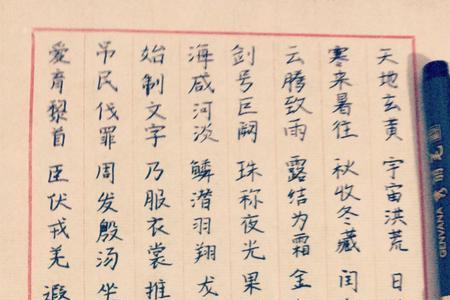 天地玄黄 宇宙洪荒 日
寒来暑往 秋收冬藏 闰
云腾致雨 露结为霜 金
剑号巨阙 珠称夜光 果
海咸河淡 鳞潜羽翔 龙
始制文字 乃服衣裳 推
吊民伐罪 周发殷汤 坐
爱育黎首 臣伏戎羌 遐
GENVANA